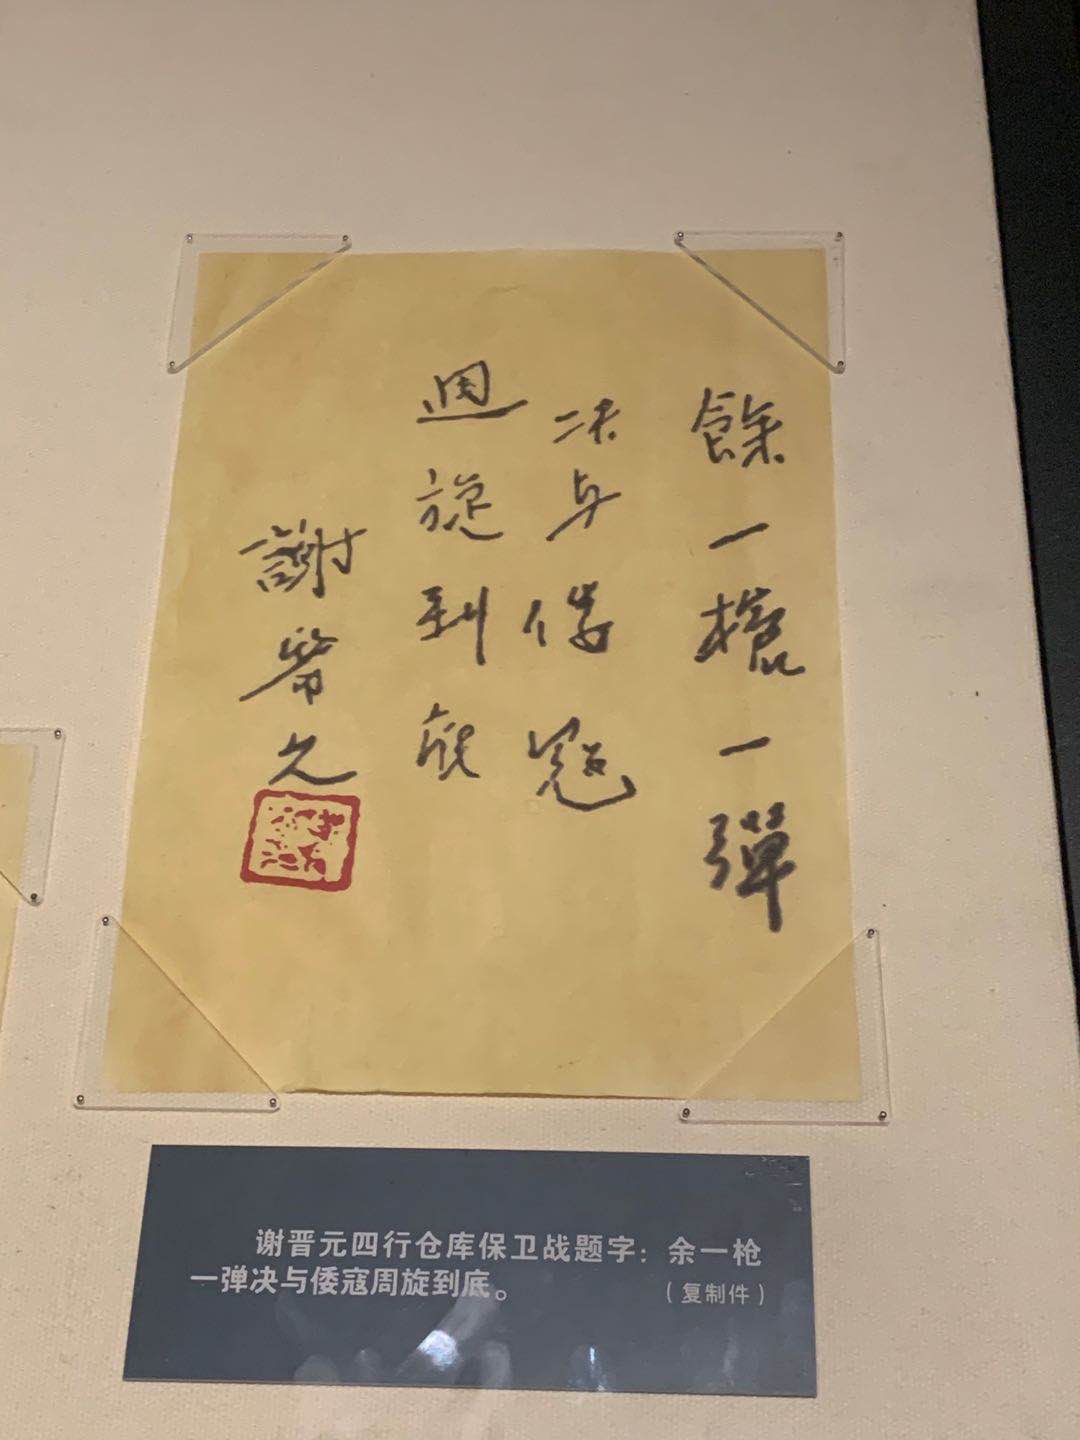 餘一槍一彈
决与倭寇
週旋到底
謝晉元
谢晋元四行仓库保卫战题字：余一枪
一弹决与倭寇周旋到底。
（复制件）